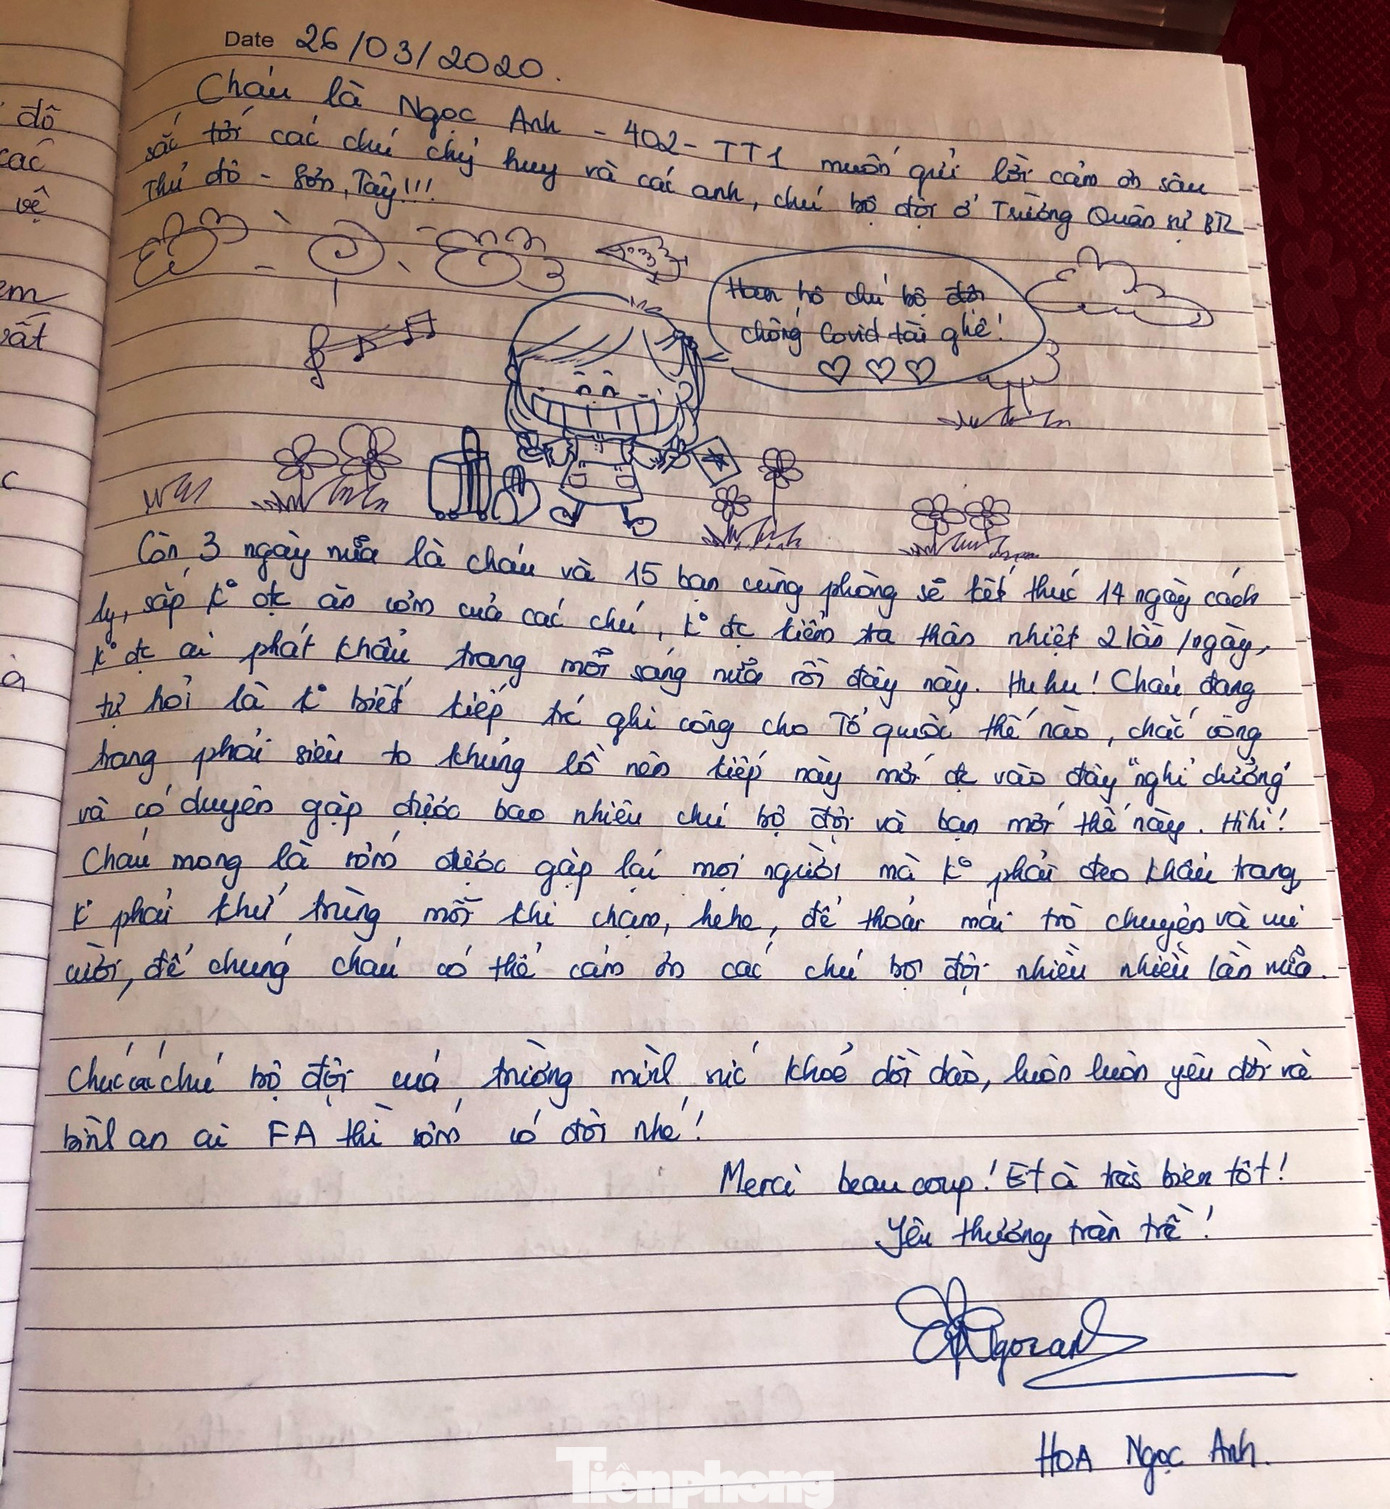 đô
các
vệ
em
rất
c
à
Date 26/03/2020.
Cháu là Ngọc Anh - 402 - TT1 muốn gửi lời cảm ơn sâu
sắc tới các chú chỉ huy và các anh, chú bộ đội ở Trường Quân sự BTL
Thủ đô - Sơn Tây!!!
hô chú bộ đội
chống Covid tài ghê!
Còn 3 ngày nữa là cháu và 15 bạn cùng phòng sẽ kết thúc 14 ngày cách
ly, sắp k° đc ăn cơm của các chú, k° đc kiểm tra thân nhiệt 2 lần/ngày,
k° đc ai phát khẩu trang mỗi sáng nữa rồi đây này. Huhu! Cháu đang
tự hỏi là k° biết kiếp trc ghi công cho Tổ quốc thế nào, chắc công
trạng phải siêu to khổng lồ nên kiếp này mới đc vào đây "nghỉ dưỡng"
và có duyên gặp được bao nhiêu chú bộ đội và bạn mới thế này. Hihi!
Cháu mong là sớm được gặp lại mọi người mà k° phải đeo khẩu trang,
k° phải khử trùng mỗi khi chạm, hehe, để thoải mái trò chuyện và vui
cười, để chúng cháu có thể cảm ơn các chú bộ đội nhiều nhiều lần nữa.
Chúc các chú bộ đội của trường mình sức khoẻ dồi dào, luôn luôn yêu đời và
bình an ai FA thì sớm có đôi nhé!
Merci beaucoup! Et à très bien tôt!
Yêu thương tràn trề!
Ngocanh
HOA Ngọc Anh.
Tiênphong